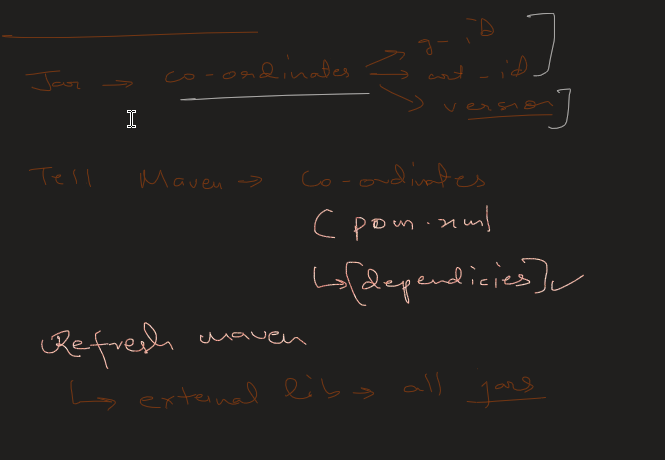 g-iD
Jar → co-ordinates → art-id
version
Tell Maven → Co-ordinates
(pom.xml
↳ [dependicies] ✓
Refresh maven
↳ external lib → all jars